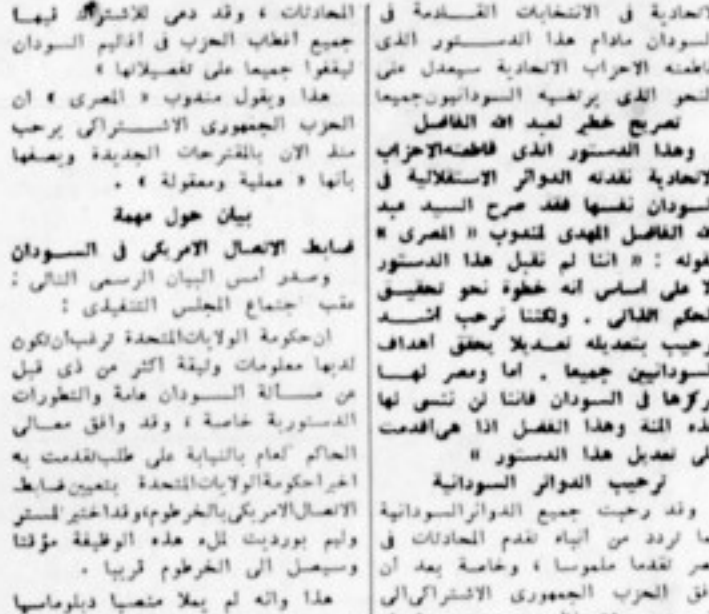 الاتحادية في الانتخابات القادمة في
السودان مادام هذا الدستور الذى
قاطعته الاحزاب الاتحادية سيعدل على
النحو الذى يرتضيه السودانيون جميعا
تصريح خطير لعبد الله الفاضل
وهذا الدستور الذى قاطعته الاحزاب
الاتحادية نقدته الدوائر الاستقلالية فى
السودان نفسها فقد صرح السيد عبد
الله الفاضل المهدى لمندوب « المصرى »
بقوله : « اننا لم نقبل هذا الدستور
الا على اساس انه خطوة نحو تحقيق
الحكم الذاتى . ولكننا نرحب أشد
ترحيب بتعديله تعديلا يحقق أهداف
السودانيين جميعا . اما ومصر لها
مركزها فى السودان فاننا لن ننسى لها
هذه المنة وهذا الفضل اذا هى أقدمت
على تعديل هذا الدستور »
ترحيب الدوائر السودانية
وقد رحبت جميع الدوائر السودانية
بما تردد من أنباء تقدم المحادثات فى
مصر تقدما ملموسا ، وخاصة بعد أن
الحزب الجمهورى الاشتراكى الى
المحادثات ، وقد دعى للاشتراك فيها
جميع أقطاب الحزب فى أقاليم السودان
ليقفوا جميعا على تفصيلاتها »
هذا ويقول مندوب « المصرى » ان
الحزب الجمهورى الاشتراكى يرحب
منذ الان بالمقترحات الجديدة ويصفها
بأنها « عملية ومعقولة » .
بيان حول مهمة
ضابط الاتصال الامريكى فى السودان
وصدر أمس البيان الرسمى التالى :
عقب اجتماع المجلس التنفيذى :
ان حكومة الولايات المتحدة ترغب أن تكون
لديها معلومات وثيقة أكثر من ذى قبل
عن مسألة السودان عامة والتطورات
الدستورية خاصة ، وقد وافق معالى
الحاكم العام بالنيابة على طلب تقدمت به
اخيرا حكومة الولايات المتحدة بتعيين ضابط
الاتصال الامريكى بالخرطوم، وقد اختير المستر
وليم بورديت لملء هذه الوظيفة مؤقتا
وسيصل الى الخرطوم قريبا .
هذا وانه لم يملا منصبا دبلوماسيا